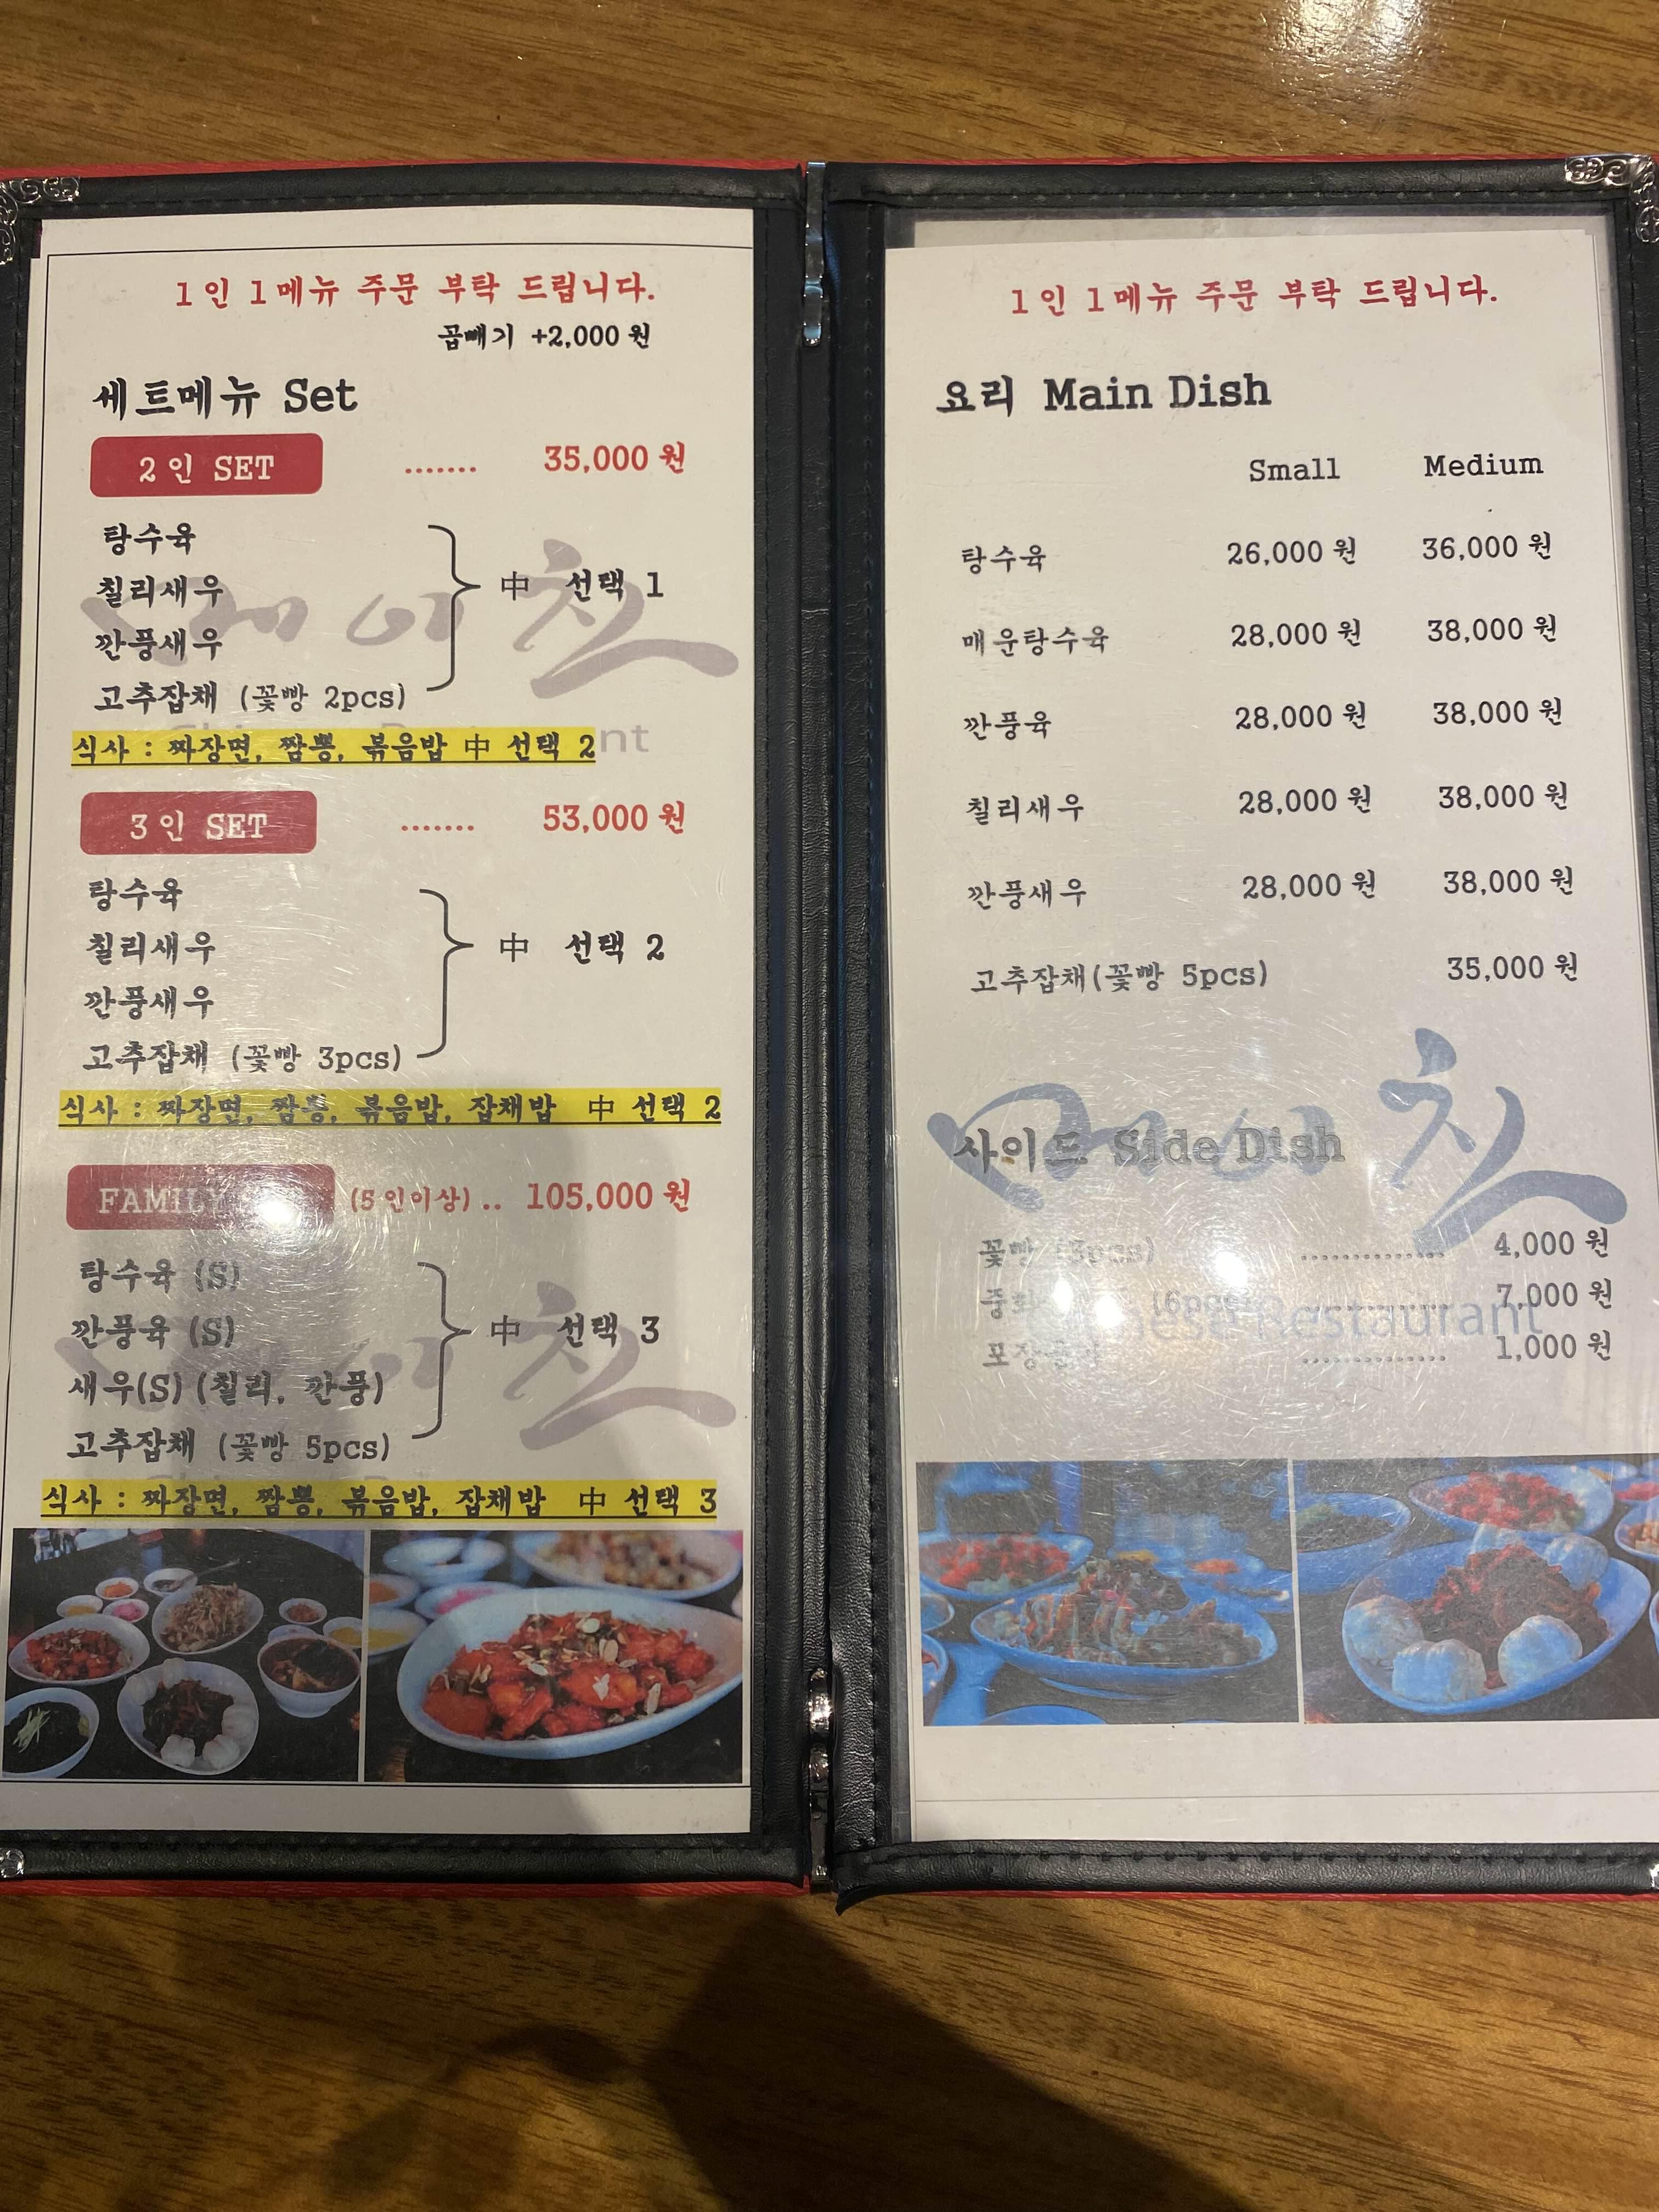 1인 1메뉴 주문 부탁 드립니다.
곱빼기 +2,000 원
세트메뉴 Set
2인 SET ....... 35,000 원
탕수육
칠리새우
中 선택 1
깐풍새우
고추잡채 (꽃빵 2pcs)
식사 : 짜장면, 짬뽕, 볶음밥 中 선택 2
3인 SET ....... 53,000 원
탕수육
칠리새우
中 선택 2
깐풍새우
고추잡채 (꽃빵 3pcs)
식사 : 짜장면, 짬뽕, 볶음밥, 잡채밥 中 선택 2
FAMILY (5인이상) .. 105,000 원
탕수육 (S)
깐풍육 (S)
中 선택 3
새우(S) (칠리, 깐풍)
고추잡채 (꽃빵 5pcs)
식사 : 짜장면, 짬뽕, 볶음밥, 잡채밥 中 선택 3
1인 1메뉴 주문 부탁 드립니다.
요리 Main Dish
Small Medium
탕수육 26,000 원 36,000 원
매운탕수육 28,000 원 38,000 원
깐풍육 28,000 원 38,000 원
칠리새우 28,000 원 38,000 원
깐풍새우 28,000 원 38,000 원
고추잡채(꽃빵 5pcs) 35,000 원
사이드 Side Dish
꽃빵 (3pcs) .................. 4,000 원
(6pcs) .................. 7,000 원
Restaurant
.................. 1,000 원